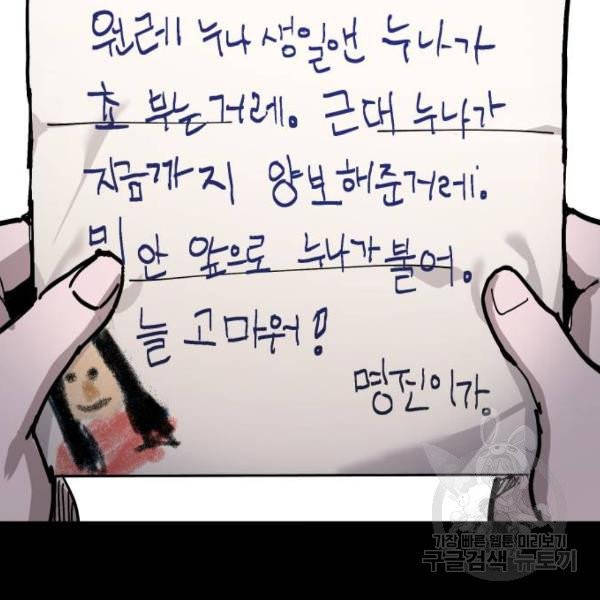 원레 누나 생일앤 누나가
쵸 부는거레. 근대 누나가
지금까지 양보해준거레.
미안 앞으로 누나가 불어.
늘 고마워!
명진이가.
가장 빠른 웹툰 미리보기
구글검색 뉴토끼